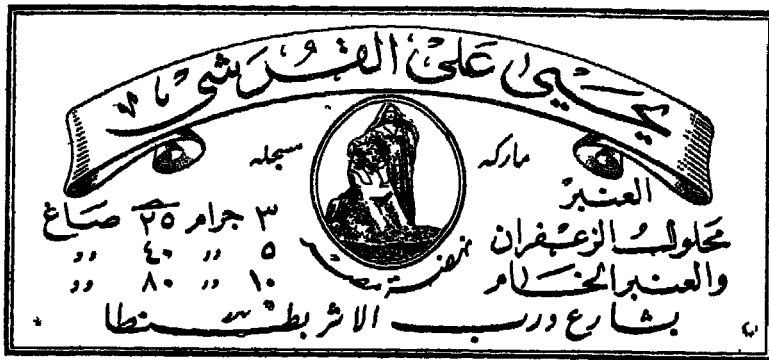 يحيى على القرشى
ماركه سجله
العنبر
محلول الزعفران
والعنبر الخام
نهضة مصر
٣ جرام ٢٥ صاغ
٥ ” ٤٠ ”
١٠ ” ٨٠ ”
بشارع درب الاثر بطنطا